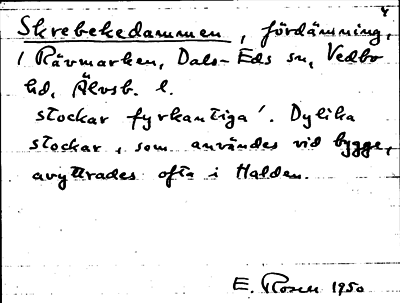 4
Skrebekedammen, fördämning,
i Rävmarken, Dals-Eds sn, Vedbo
hd, Älvsb. l.
stockar fyrkantiga'. Dylika
stockar, som användes vid bygge,
avyttrades ofta i Halden.
E. Rosell 1950